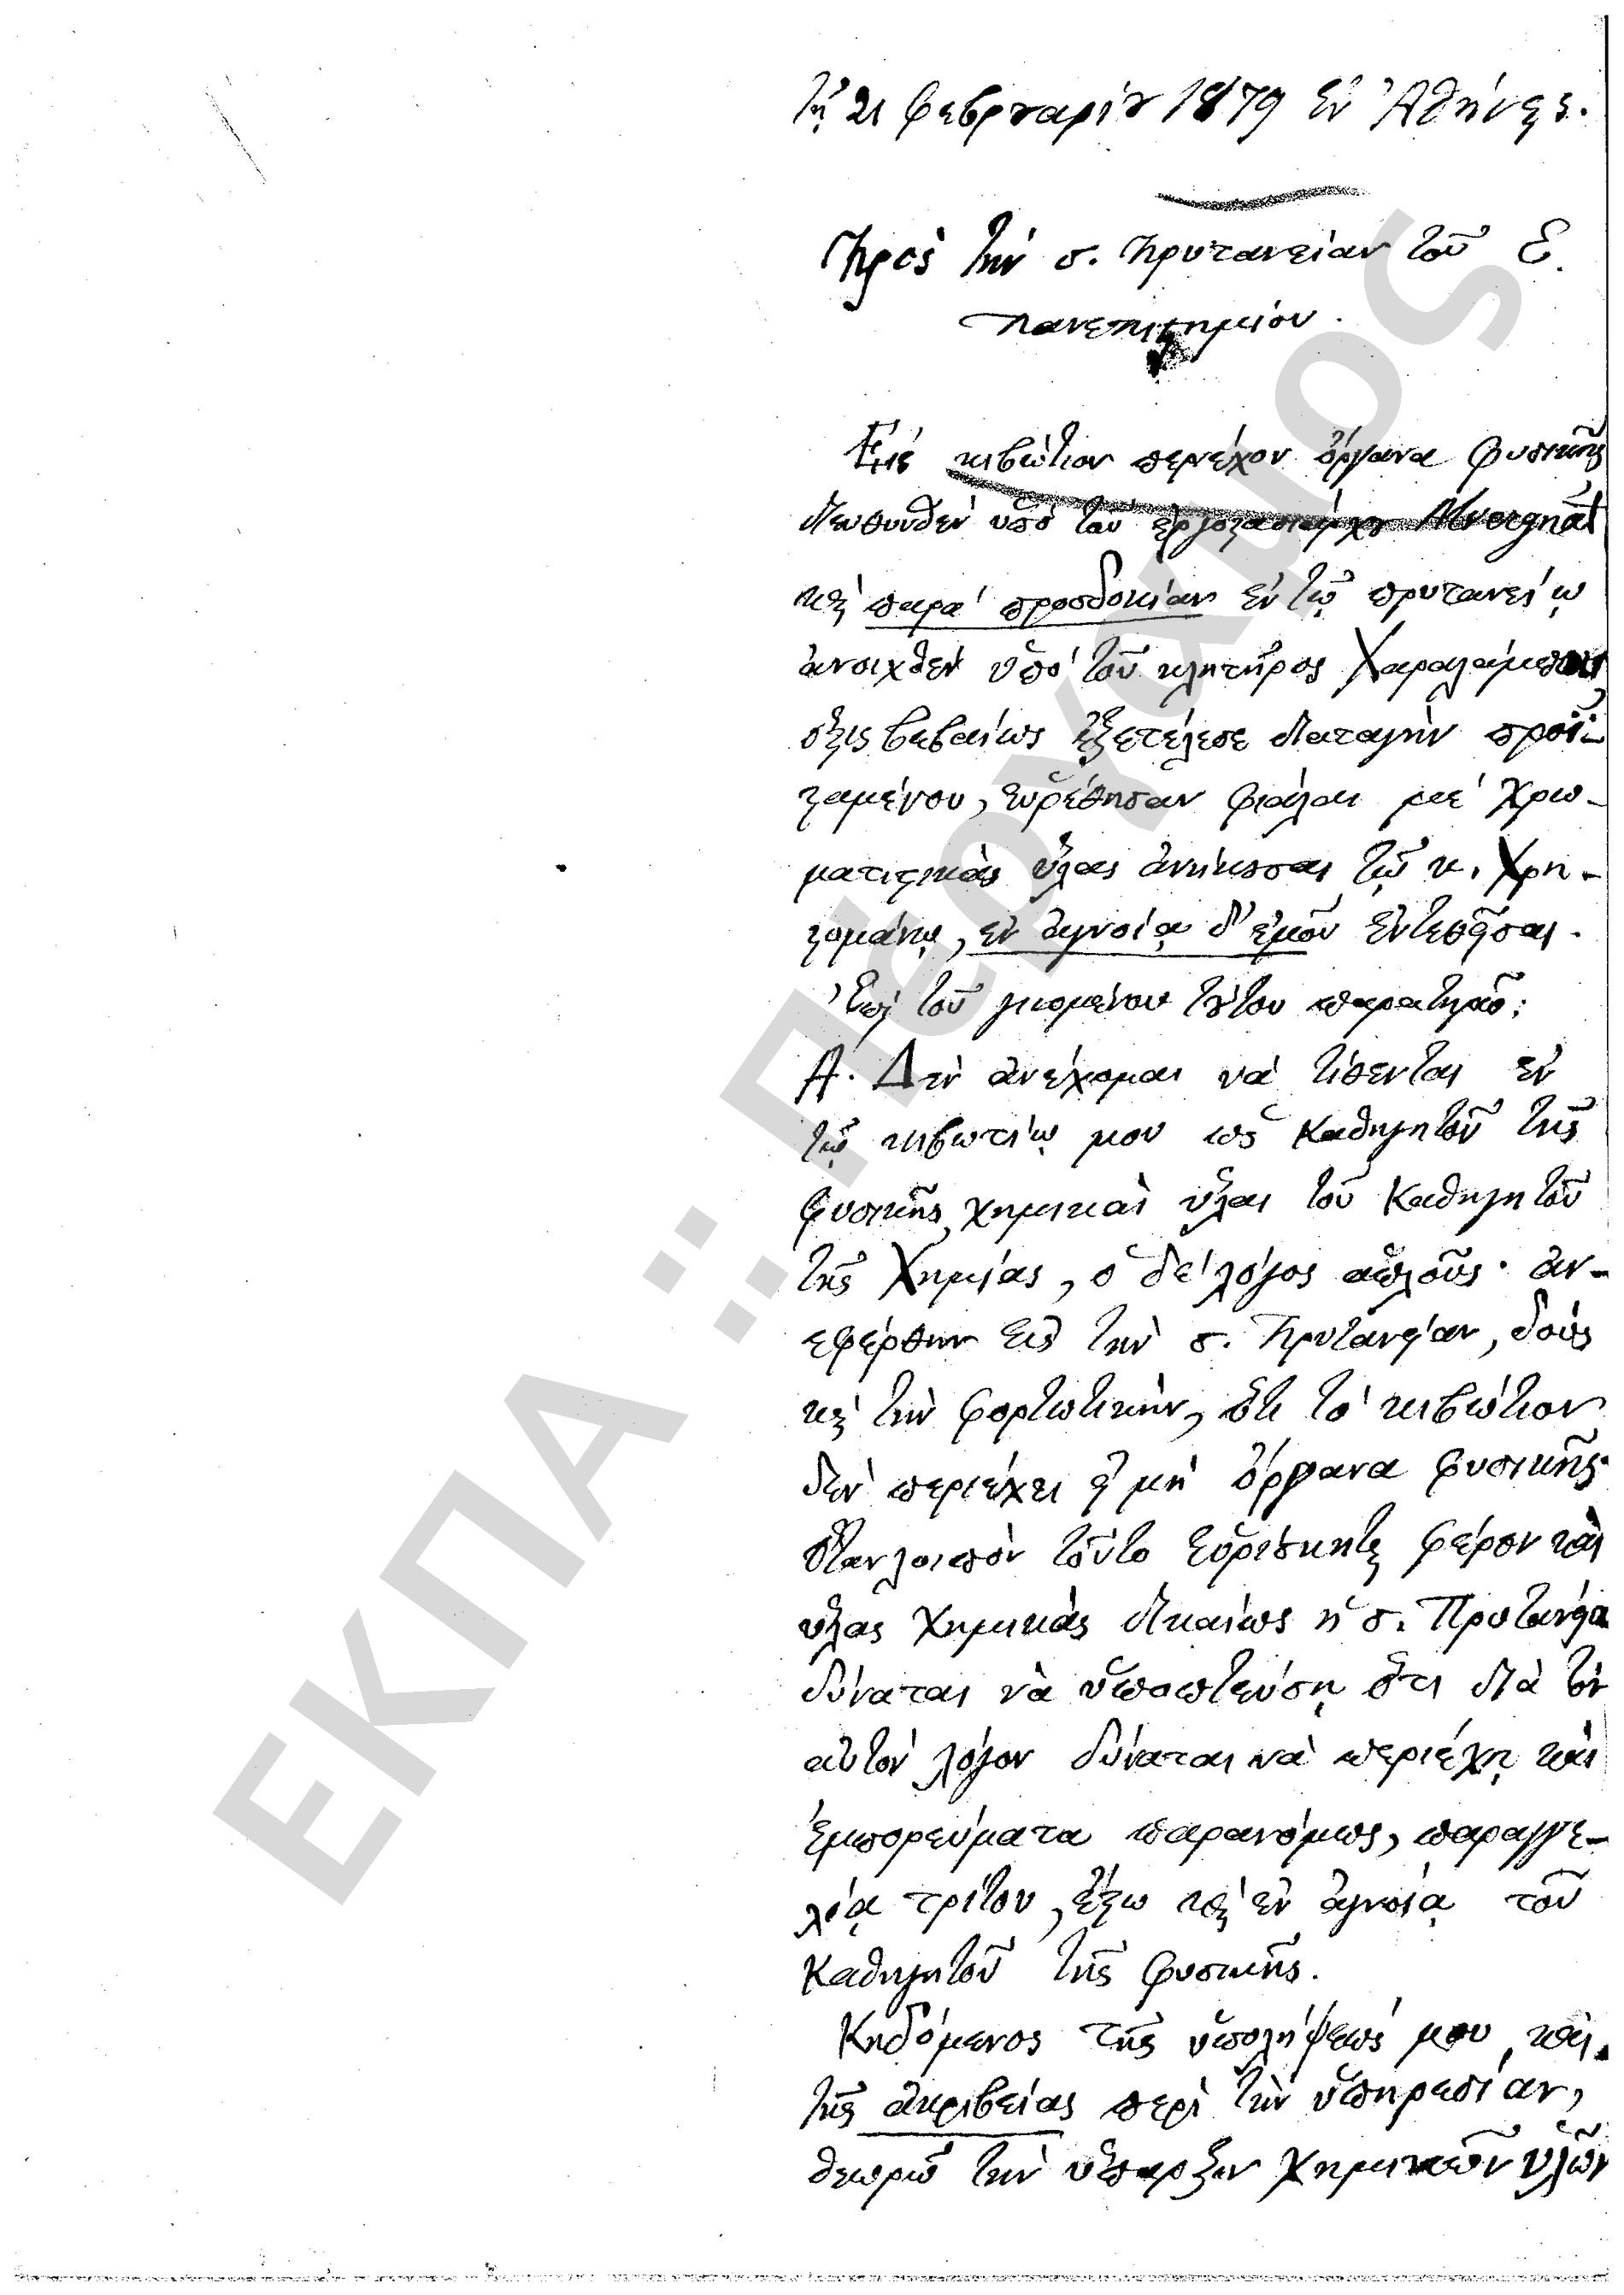 Τῇ 21 Φεβρουαρίου 1879 Ἐν Ἀθήναις.
Πρὸς τὴν σ. Πρυτανείαν τοῦ Ε.
Πανεπιστημίου.
Εἰς κιβώτιον περιέχον ὄργανα φυσικῆς
διευθυνθὲν ὑπὸ τοῦ ἐργοστασιάρχου Alvergnat
καὶ παρὰ προσδοκίαν ἐν τῷ πρυτανείῳ
ἀνοιχθὲν ὑπὸ τοῦ κλητῆρος Χαραλάμπους
ὅστις βεβαίως ἐξετέλεσε διαταγὴν προϊ-
σταμένου, εὑρέθησαν φιάλαι μὲ χρω-
ματιστικὰς ὕλας ἀνήκουσαι τῷ κ. Χρη-
στομάνῳ, ἐν ἀγνοίᾳ δ' ἐμοῦ ἐντεθεῖσαι.
Ἐπὶ τοῦ γενομένου τούτου παρατηρῶ:
Α. Δὲν ἀνέχομαι νὰ τίθενται ἐν
τῷ κιβωτίῳ μου ὡς Καθηγητοῦ τῆς
φυσικῆς χημικαὶ ὕλαι τοῦ Καθηγητοῦ
τῆς Χημείας, ὁ δὲ λόγος ἁπλοῦς· ἀν-
εφέρθην εἰς τὴν σ. Πρυτανείαν, δοὺς
καὶ τὴν φορτωτικὴν, ὅτι τὸ κιβώτιον
δὲν περιέχει εἰ μὴ ὄργανα φυσικῆς·
ὅταν λοιπὸν τοῦτο εὑρίσκηται φέρον καὶ
ὕλας χημικὰς δικαίως ἡ σ. Πρυτανεία
δύναται νὰ ὑποπτεύσῃ ὅτι διὰ τὸν
αὐτὸν λόγον δύναται νὰ περιέχῃ καὶ
ἐμπορεύματα παρανόμως, παραγγε-
λίᾳ τρίτου, ἔξω καὶ ἐν ἀγνοίᾳ τοῦ
Καθηγητοῦ τῆς φυσικῆς.
Κηδόμενος τῆς ὑπολήψεώς μου, καὶ
τῆς ἀκριβείας περὶ τὴν ὑπηρεσίαν,
θεωρῶ τὴν ὕπαρξιν χημικῶν ὑλῶν
ΕΚΠΑ :: Πέργαμος